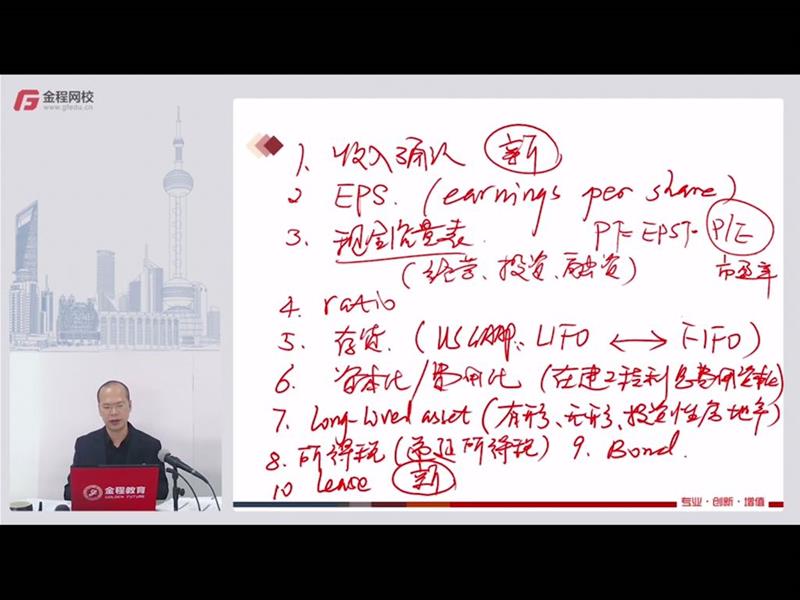 金程网校
www.gfedu.cn
1. 收入确认 新
2 EPS. (earnings per share)
3. 现金流量表. P↑= EPS↑· P/E
(经营、投资、融资) 市盈率
4. ratio
5. 存货. (US GAAP: LIFO ←→ FIFO)
6 资本化/费用化 (在建工程利息费用资本化)
7. Long-lived asset (有形、无形、投资性房地产)
8. 所得税 (递延所得税) 9. Bond.
10 lease 新
金程教育
GOLDEN FUTURE
专业·创新·增值